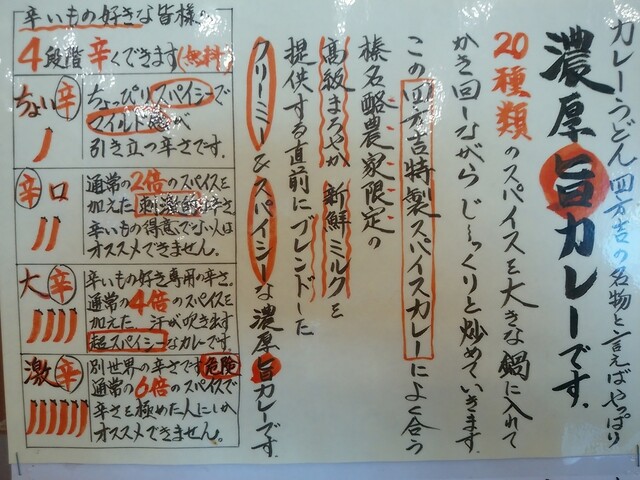 カレーうどん 四方吉の名物と言えばやっぱり
濃厚旨カレーです。
20種類のスパイスを大きな鍋に入れて
かき回しながらじ〜っくりと炒めていきます。
この四方吉特製スパイスカレーによく合う
榛名酪農家限定の
高級まろやか新鮮ミルクを
提供する直前にブレンドした
クリーミー&スパイシーな濃厚旨カレーです。
辛いもの好きな皆様。
4段階辛くできます(無料)
ちょい辛
ちょっぴりスパイシーで
ワイルド感が
引き立の辛さです。
辛口
通常の2倍のスパイスを
加えた刺激的な辛さ
辛いもの得意でない人は
オススメできません。
大辛
辛いもの好き専用の辛さ。
通常の4倍のスパイスを
加えた、汗が吹き出す
超スパイシーなカレー
激辛
別世界の辛さです危険
通常の6倍のスパイスで
辛さを極めた人にしか
オススメできません。